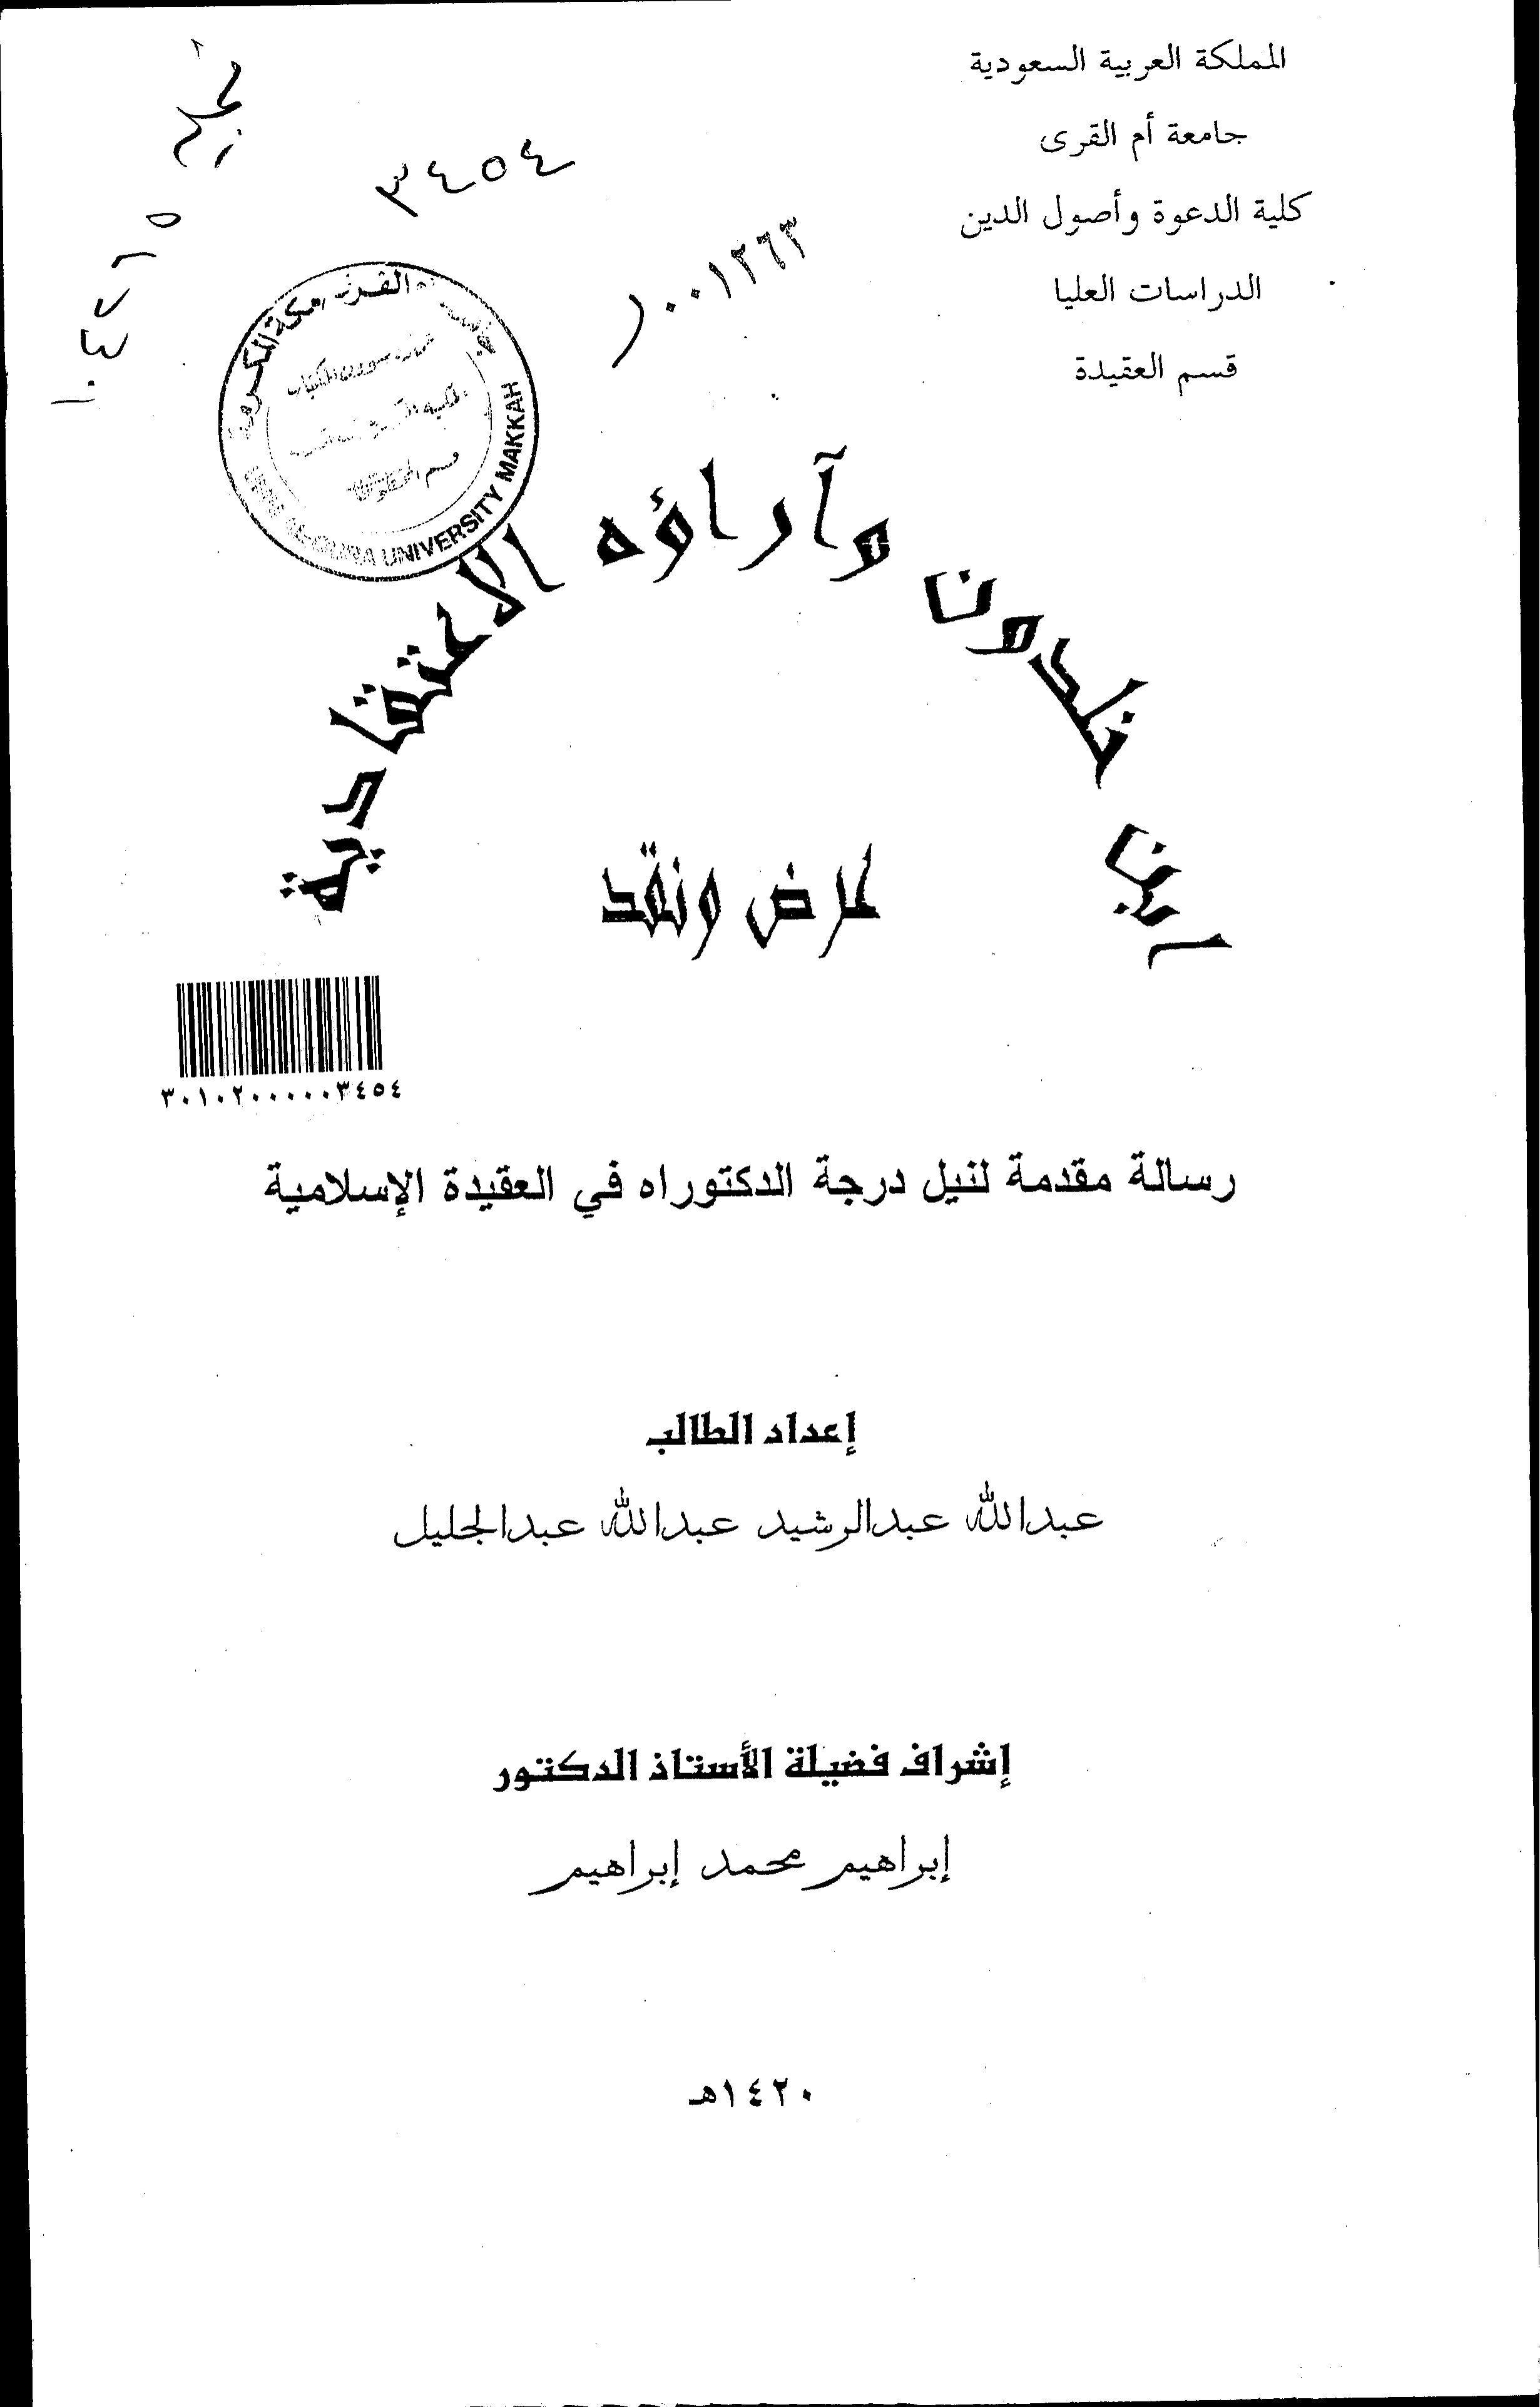 المملكة العربية السعودية
جامعة أم القرى
كلية الدعوة وأصول الدين
الدراسات العليا
قسم العقيدة
٣٤٥٤
٠٠١٢٦٣
القرى مكة المكرمة
UMM AL-QURA UNIVERSITY MAKKAH
ابن خلدون وآراؤه الاعتقادية
عرض ونقد
٣٠١٠٢٠٠٠٠٠٣٤٥٤
رسالة مقدمة لنيل درجة الدكتوراه في العقيدة الإسلامية
إعداد الطالب
عبدالله عبدالرشيد عبدالله عبدالجليل
إشراف فضيلة الأستاذ الدكتور
إبراهيم محمد إبراهيم
١٤٢٠هـ